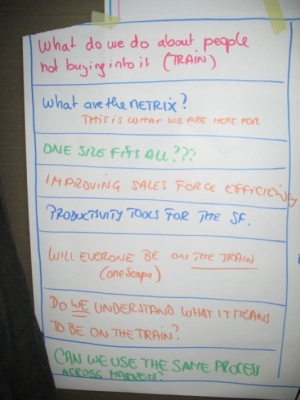 What do we do about people
not buying into it (TRAIN)
What are the METRIX?
THIS IS WHAT WE ARE HERE FOR
ONE SIZE FITS ALL???
IMPROVING SALES FORCE EFFICIENCY
PRODUCTIVITY TOOLS FOR THE SF.
WILL EVERONE BE ON THE TRAIN
(one Scapa)
DO WE UNDERSTAND WHAT IT MEANS
TO BE ON THE TRAIN?
CAN WE USE THE SAME PROCESS
ACROSS MARKETS?